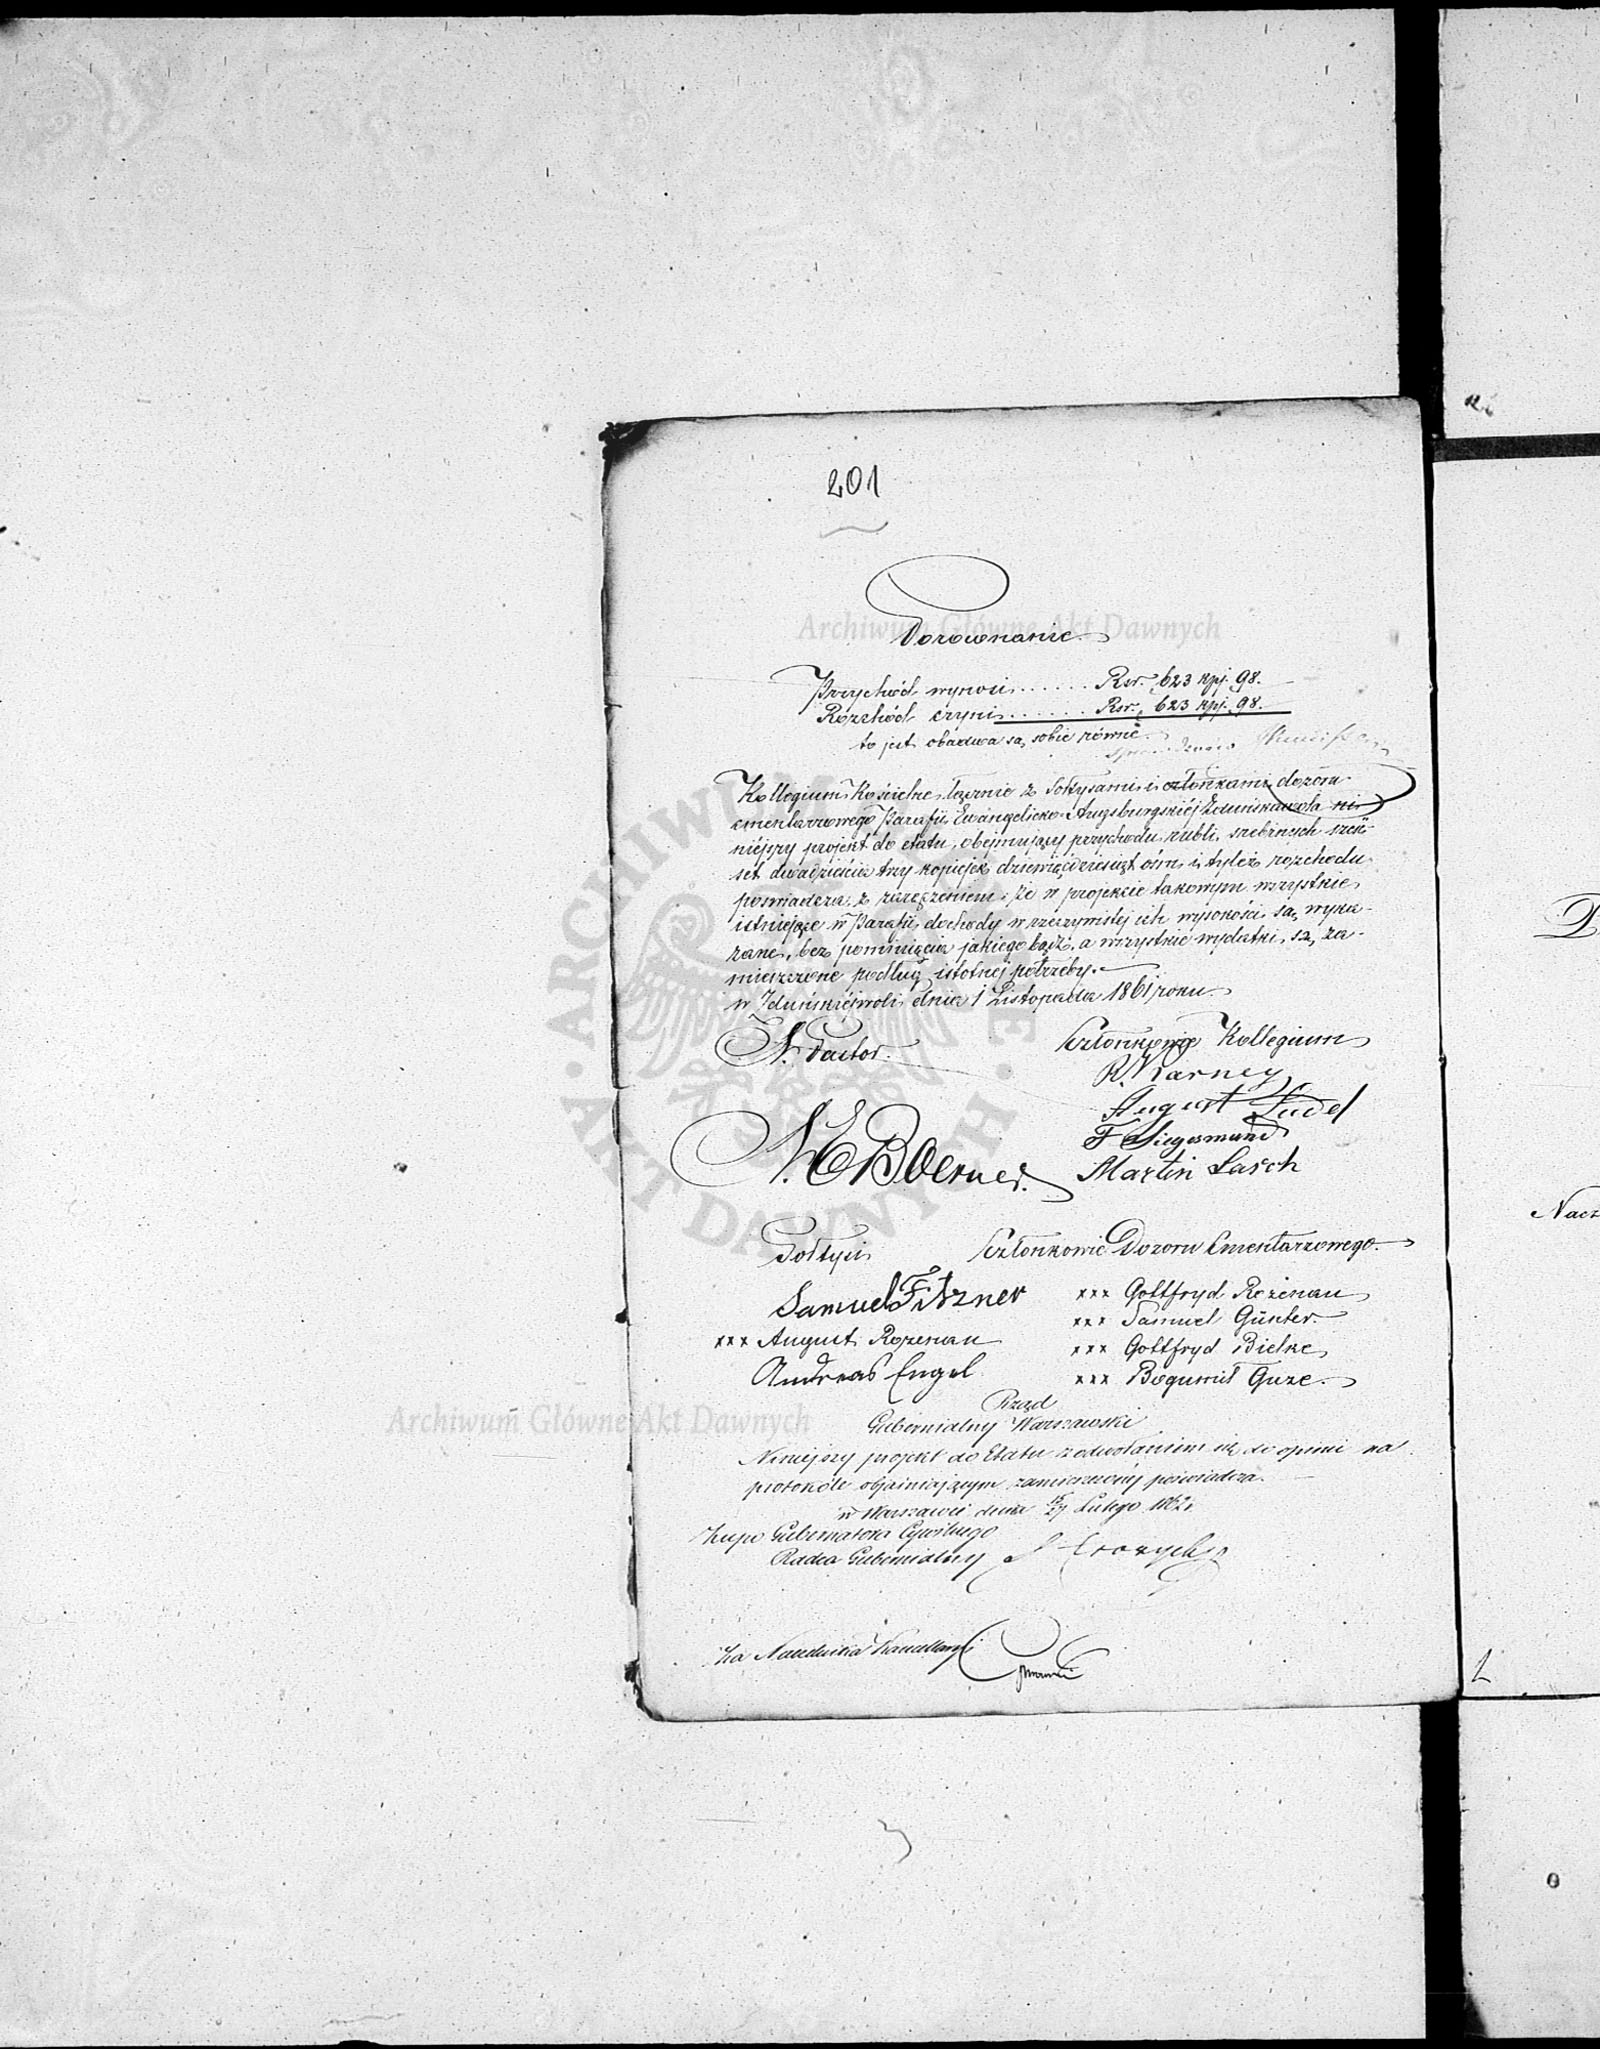 201
Archiwum Główne Akt Dawnych
Porównanie
Przychód wynosi ...... Rsr. 623 kpj. 98.
Rozchód czyni ...... Rsr. 623 kpj. 98.
to jest obadwa są sobie równe.
Kollegium Kościelne łącznie z Sołtysami i członkami dozoru
cmentarzowego Parafii Ewangelicko-Augsburgskiéj Zduńskawola ni-
niéjszy projekt do etatu, obejmujący przychodu rubli srebrnych sześć-
set dwadzieścia trzy kopiejek dziewięćdziesiąt ośm i tyleż rozchodu
poświadcza z zaręczeniem, że w projekcie takowym wszystkie
istniejące w Parafii dochody w rzeczywistéj ich wysokości są wyka-
zane, bez pominięcia jakiego bądź, a wszystkie wydatki są za-
mieszczone podług istotnéj potrzeby.
w Zduńskiéjwoli dnia 1 Listopada 1861 roku.
Pastor.
Członkowie Kollegium
August Ludel
F Siegesmund
N. E Boerner.
Martin Lasch
Sołtysi
Członkowie Dozoru Cmentarzowego.
Samuel Fitzner
xxx Gottfryd Rozenau
xxx Samuel Günter
xxx August Rozenau
xxx Gottfryd Bielke
Andreas Engel
xxx Bogumił Guze.
Rząd
Gubernialny Warszawski
Niniejszy projekt do Etatu z odwołaniem się do opinii na
protokóle objaśniającym zamieszczonéj poświadcza.
w Warszawie dnia 15/27 Lutego 1862 r
Gubernatora Cywilnego
Radca Gubernialny
Za Naczelnika Kancellaryi
Archiwum Główne Akt Dawnych
ARCHIWUM GŁÓWNE
AKT DAWNYCH
Nacz